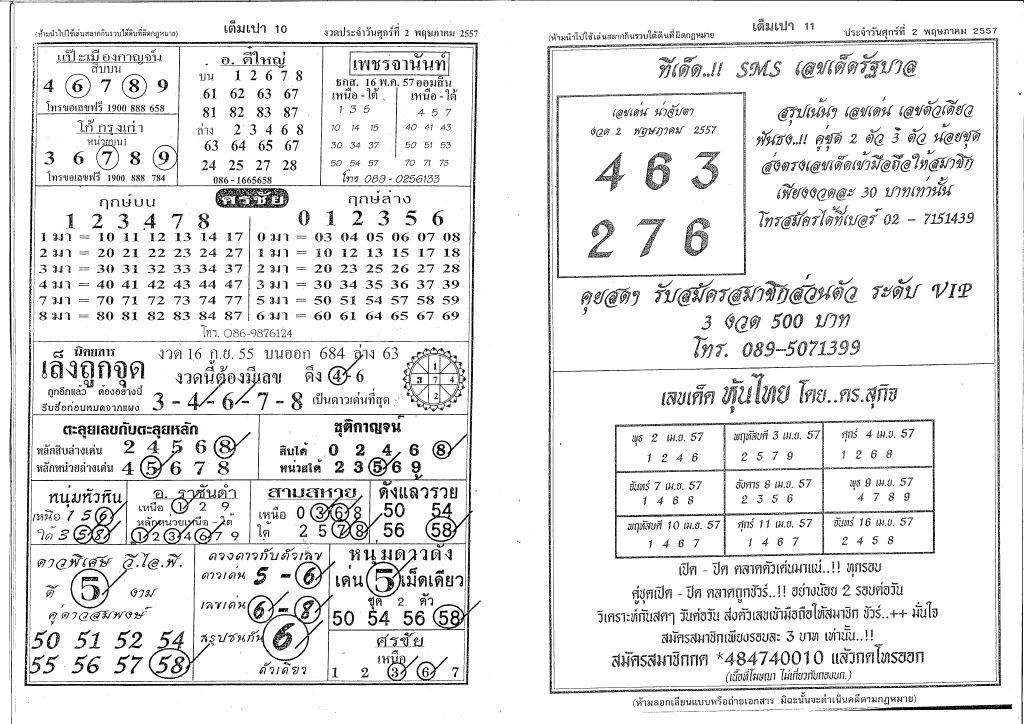 (ห้ามนำไปใช้เล่นสลากกินรวบใต้ดินที่ผิดกฎหมาย) เต็มเปา 10 งวดประจำวันศุกร์ที่ 2 พฤษภาคม 2557
แป๊ะเมืองกาญจน์
สิบบน
4 6 7 8 9
โทรขอเลขฟรี 1900 888 658
โก้ กรุงเก่า
หน่วยบน
3 6 7 8 9
โทรขอเลขฟรี 1900 888 784
อ. ตี๋ใหญ่
บน 1 2 6 7 8
61 62 63 67
81 82 83 87
ล่าง 2 3 4 6 8
63 64 65 67
24 25 27 28
086-1665658
เพชรจานันท์
ธกส. 16 พ.ค. 57 ออมสิน
เหนือ - ใต้ เหนือ - ใต้
1 3 5 4 5 7
10 14 15 40 41 43
30 34 37 50 51 53
50 54 57 70 71 73
โทร 089-0256133
ศรชัย
ฤกษ์บน ฤกษ์ล่าง
1 2 3 4 7 8 0 1 2 3 5 6
1 มา = 10 11 12 13 14 17 0 มา = 03 04 05 06 07 08
2 มา = 20 21 22 23 24 27 1 มา = 10 12 13 15 17 18
3 มา = 30 31 32 33 34 37 2 มา = 20 23 25 26 27 28
4 มา = 40 41 42 43 44 47 3 มา = 30 34 35 36 37 39
7 มา = 70 71 72 73 74 77 5 มา = 50 51 54 57 58 59
8 มา = 80 81 82 83 84 87 6 มา = 60 61 64 65 67 68
โทร. 086-9876124
นิตยสาร
เล็งถูกจุด
ถูกอีกแล้ว ต้องอย่างนี้
รีบซื้อก่อนหมดจากแผง
งวด 16 ก.ย. 55 บนออก 684 ล่าง 63
งวดนี้ต้องมีเลข ดึง 4 - 6
3 - 4 - 6 - 7 - 8 เป็นดาวเด่นที่สุด
ตะลุยเลขกับตะลุยหลัก
หลักสิบล่างเด่น 2 4 5 6 8
หลักหน่วยล่างเด่น 4 5 6 7 8
ชุติกาญจน์
สิบใต้ 0 2 4 6 8
หน่วยใต้ 2 3 5 6 9
หนุ่มหัวหิน
เหนือ 1 5 6
ใต้ 3 5 8
อ. ราชันดำ
เหนือ 1 2 9
หลักหน่วยเหนือ - ใต้
1 2 3 4 6 7 9
สามสหาย
เหนือ 0 3 6 8
ใต้ 2 5 7 8
ดังแล้วรวย
50 54
56 58
ดาวพิเศษ วี.ไอ.พี.
ดี 5 งาม
คู่ดาวสมพงษ์
50 51 52 54
55 56 57 58
ดวงดาวกับตัวเลข
ดาวเด่น 5 - 6
เลขเด่น 6 - 8
สรุปชนกัน 6
ตัวเดียว
หนุ่มดาวดัง
เด่น 5 เม็ดเดียว
ชุด 2 ตัว
50 54 56 58
ศรชัย
เหนือ
1 2 3 6 7
(ห้ามนำไปใช้เล่นสลากกินรวบใต้ดินที่ผิดกฎหมาย เต็มเปา 11 ประจำวันศุกร์ที่ 2 พฤษภาคม 2557
ทีเด็ด..!! SMS เลขเด็ดรัฐบาล
เลขเด่น น่าจับตา
งวด 2 พฤษภาคม 2557
4 6 3
2 7 6
สรุปเน้นๆ เลขเด่น เลขตัวเดียว
ฟันธง..!! คู่ชุด 2 ตัว 3 ตัว น้อยชุด
ส่งตรงเลขเด็ดเข้ามือถือให้สมาชิก
เพียงงวดละ 30 บาทเท่านั้น
โทรสมัครได้ที่เบอร์ 02 - 7151439
คุยสดๆ รับสมัครสมาชิกส่วนตัว ระดับ VIP
3 งวด 500 บาท
โทร. 089-5071399
เลขเด็ด หุ้นไทย โดย..ดร.สุกิจ
พุธ 2 เม.ย. 57 พฤหัสบดี 3 เม.ย. 57 ศุกร์ 4 เม.ย. 57
1 2 4 6 2 5 7 9 1 2 6 8
จันทร์ 7 เม.ย. 57 อังคาร 8 เม.ย. 57 พุธ 9 เม.ย. 57
1 4 6 8 2 3 5 6 4 7 8 9
พฤหัสบดี 10 เม.ย. 57 ศุกร์ 11 เม.ย. 57 จันทร์ 16 เม.ย. 57
1 4 6 7 1 4 6 7 2 4 5 8
เปิด - ปิด ตลาดตัวเด่นมาแน่..!! ทุกรอบ
คู่ชุดเปิด - ปิด ตลาดถูกชัวร์..!! อย่างน้อย 2 รอบต่อวัน
วิเคราะห์กันสดๆ วันต่อวัน ส่งตัวเลขเข้ามือถือให้สมาชิก ชัวร์..++ มั่นใจ
สมัครสมาชิกเพียงรอบละ 3 บาท เท่านั้น..!!
สมัครสมาชิกกด *484740010 แล้วกดโทรออก
(เนื้อที่โฆษณา ไม่เกี่ยวกับกองบก.)
(ห้ามลอกเลียนแบบหรือถ่ายเอกสาร มิฉะนั้นจะดำเนินคดีตามกฎหมาย)